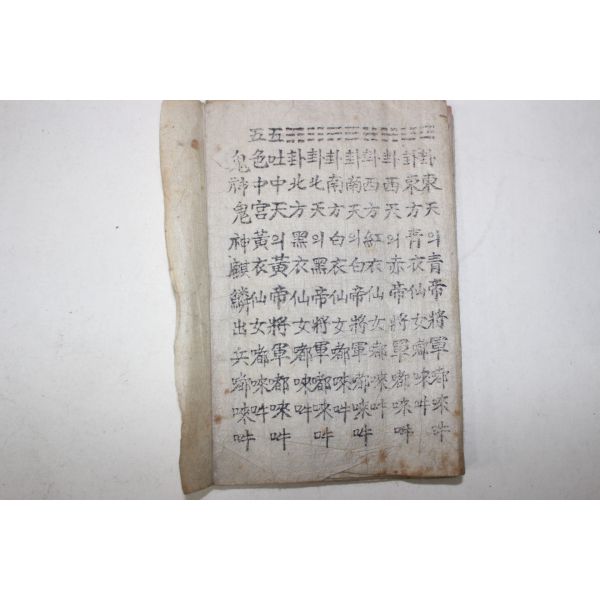 卦東天의青帝將軍嘟唻吽
卦東方青衣仙女嘟唻吽
卦西天의赤帝將軍嘟唻吽
卦西方紅衣仙女嘟唻吽
卦南天의白帝將軍嘟唻吽
卦南方白衣仙女嘟唻吽
卦北天의黑帝將軍嘟唻吽
卦北方黑衣仙女嘟唻吽
五吐中天의黃帝將軍都唻吽
五色中宮黃衣仙女嘟唻吽
鬼神鬼神麒麟出兵嘟唻吽